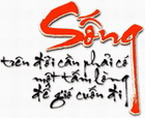 Sống
trên đời cần phải có
một tấm lòng
để gió cuốn đi